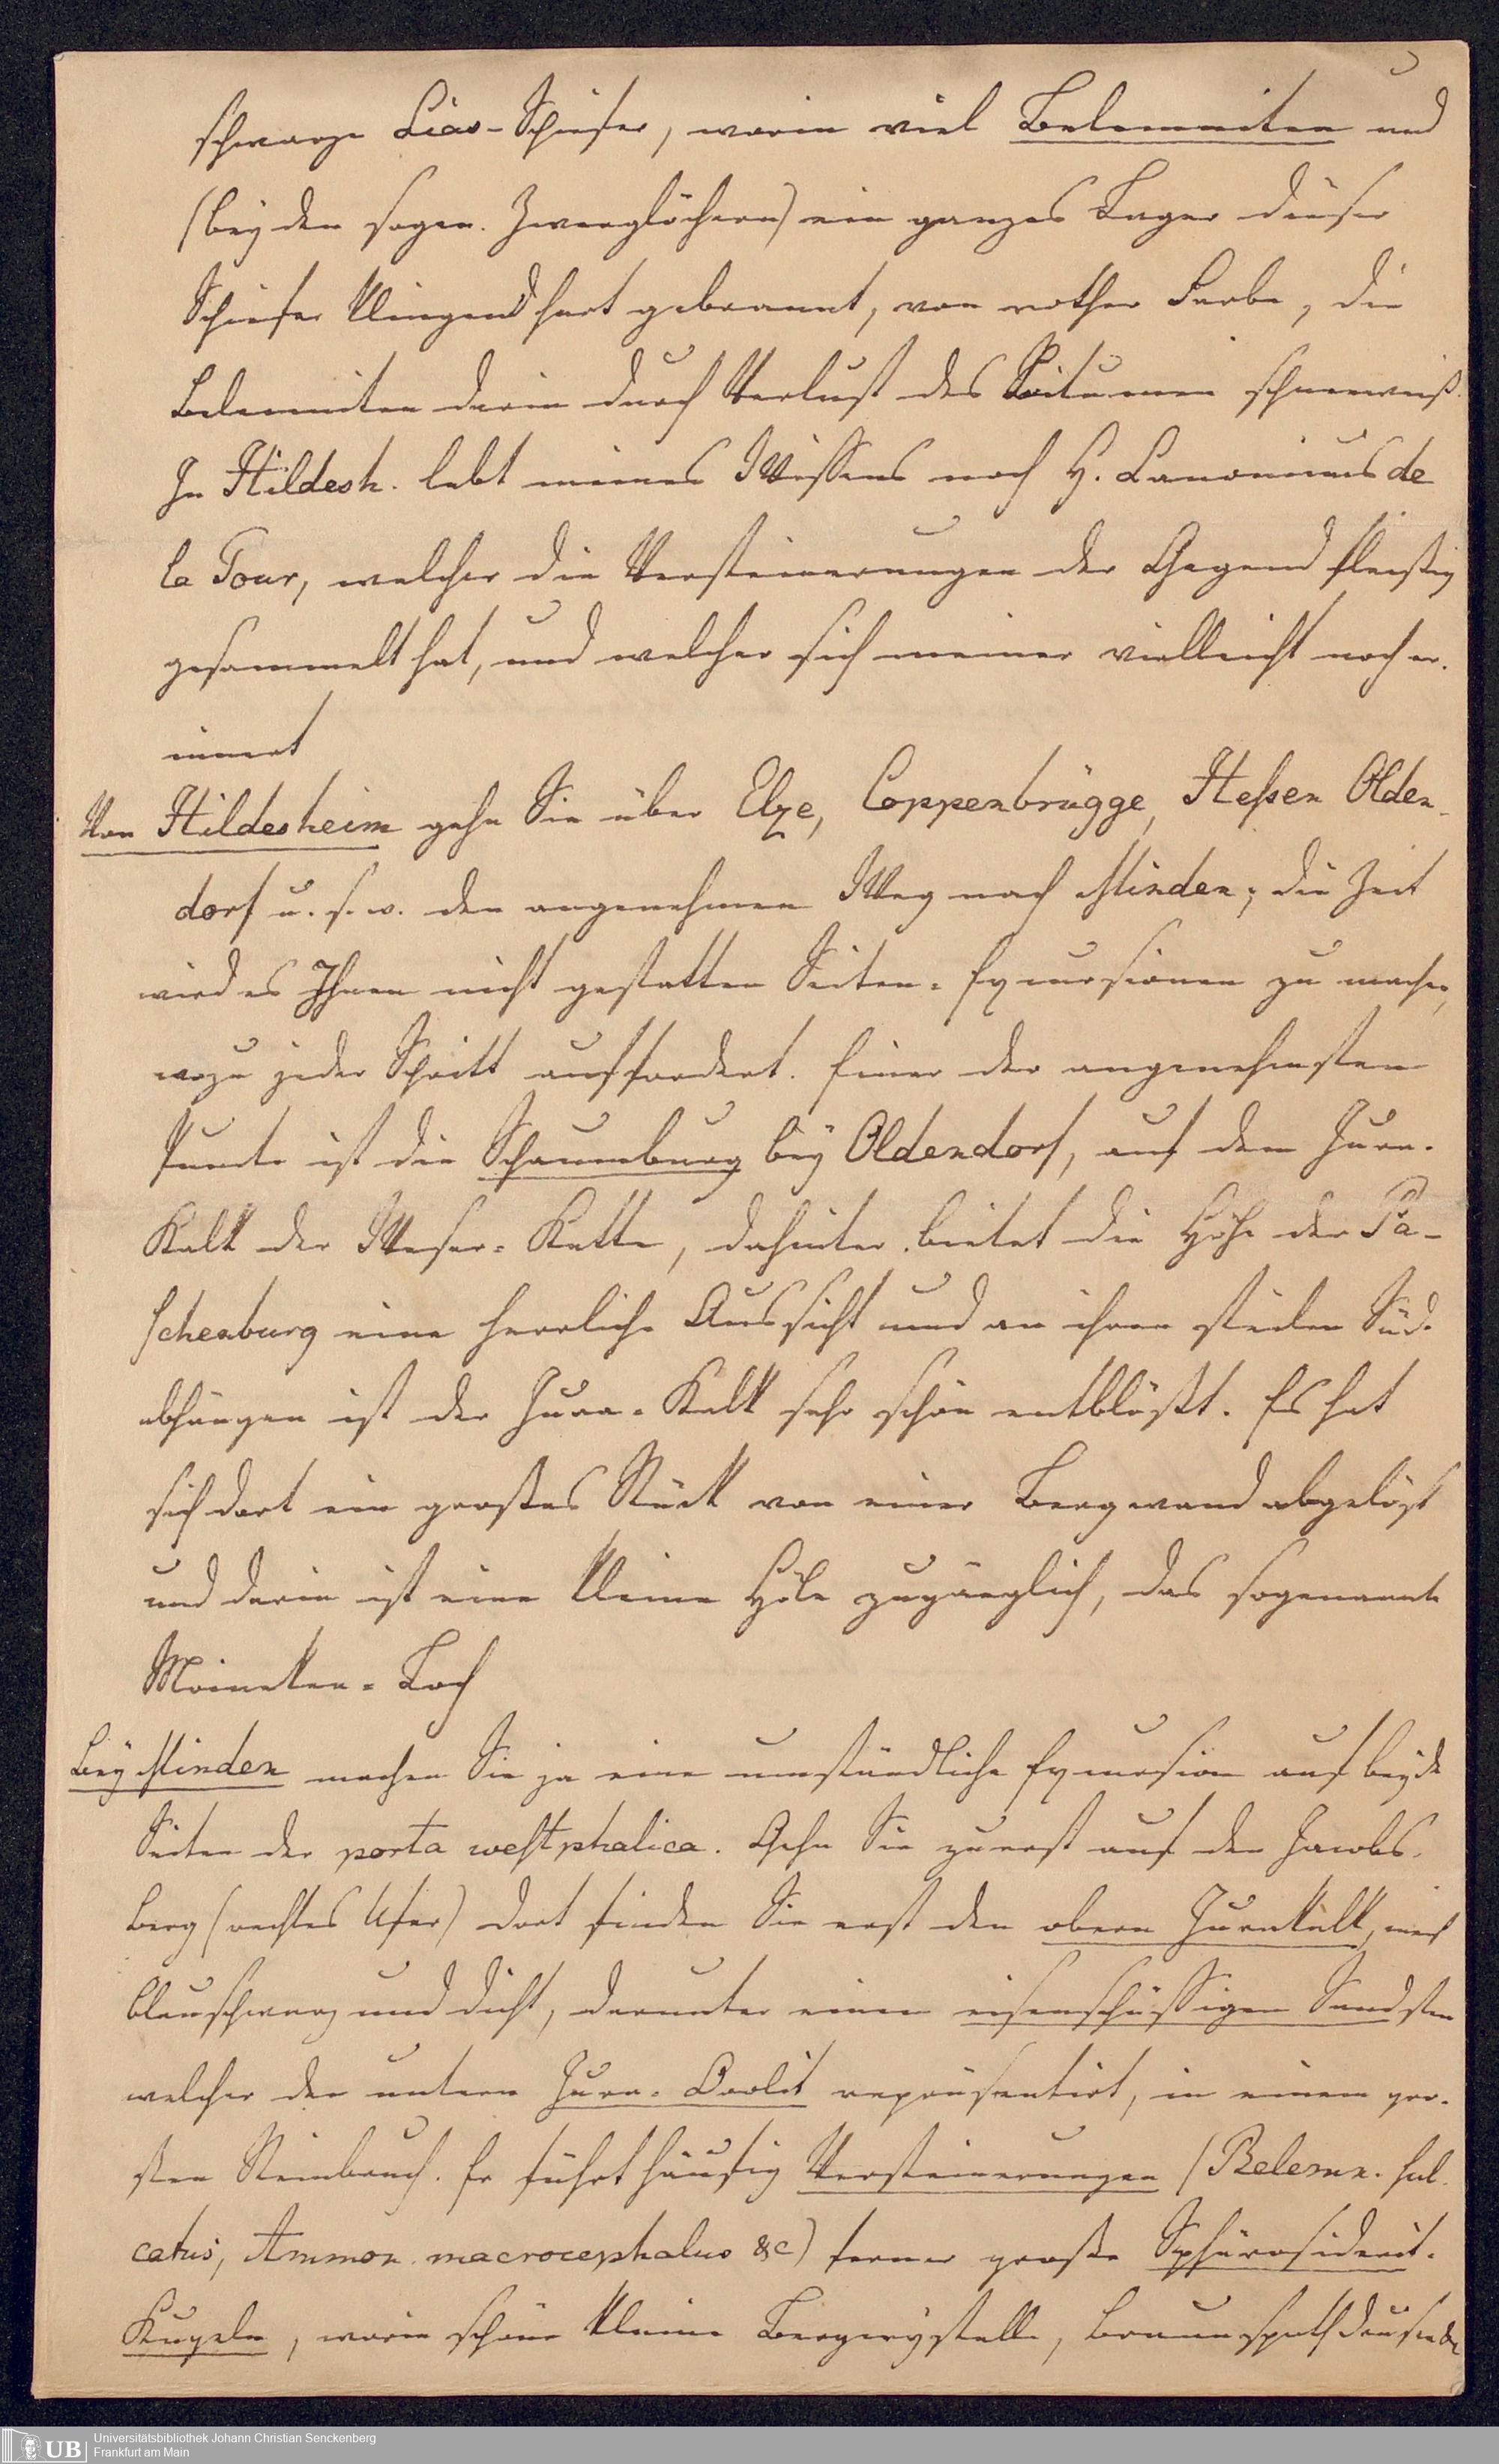 schwarze Lias-Schiefer, worin viel Belemniten und
(bey den sogen. Zwerglöchern) ein ganzes Lager dieser
Schiefer klingend hart gebrannt, von rother Farbe, die
Belemniten darin durch Verlust des Bitumen schneeweiß.
In Hildesh. lebt meines Wissens noch H. Canonicus de
la Tour, welcher die Versteinerungen der Gegend fleißig
gesammelt hat, und welcher sich meiner vielleicht noch er-
innert
Von Hildesheim gehn Sie über Elze, Coppenbrügge, Heßen Olden-
dorf u. s. w. den angenehmen Weg nach Minden; die Zeit
wird es Ihnen nicht gestatten Seiten-Excursionen zu machen,
wozu jeder Schritt auffordert. Einer der angenehmsten
Puncte ist die Schaumburg bey Oldendorf, auf dem Jura-
Kalk der Weser-Kette, dahinter bietet die Höhe der Pa-
schenburg eine herrliche Aussicht und an ihren steilen Süd-
abhängen ist der Jura-Kalk sehr schön entblößt. Es hat
sich dort ein großes Stück von einer Bergwand abgelöst
und darin ist eine kleine Höle zugänglich, das sogenannte
Moineken-Loch
Bey Minden machen Sie ja eine umständliche Excursion auf beyde
Seiten der porta westphalica. Gehn Sie zuerst auf den Jacobs-
berg (rechtes Ufer) dort finden Sie erst den obern Jurakalk, meist
blauschwarz und dicht, darunter einen eisenschüssigen Sandstein
welcher den untern Jura-Oolit repräsentirt, in einem gro-
ßen Steinbruch. Er führt häufig Versteinerungen (Belemn. sul-
catus, Ammon. macrocephalus &c) ferner große Sphärosiderit-
Kugeln, worin schöne kleine Bergcrystalle, Braunspathdrusen &c
Universitätsbibliothek Johann Christian Senckenberg
Frankfurt am Main
UB